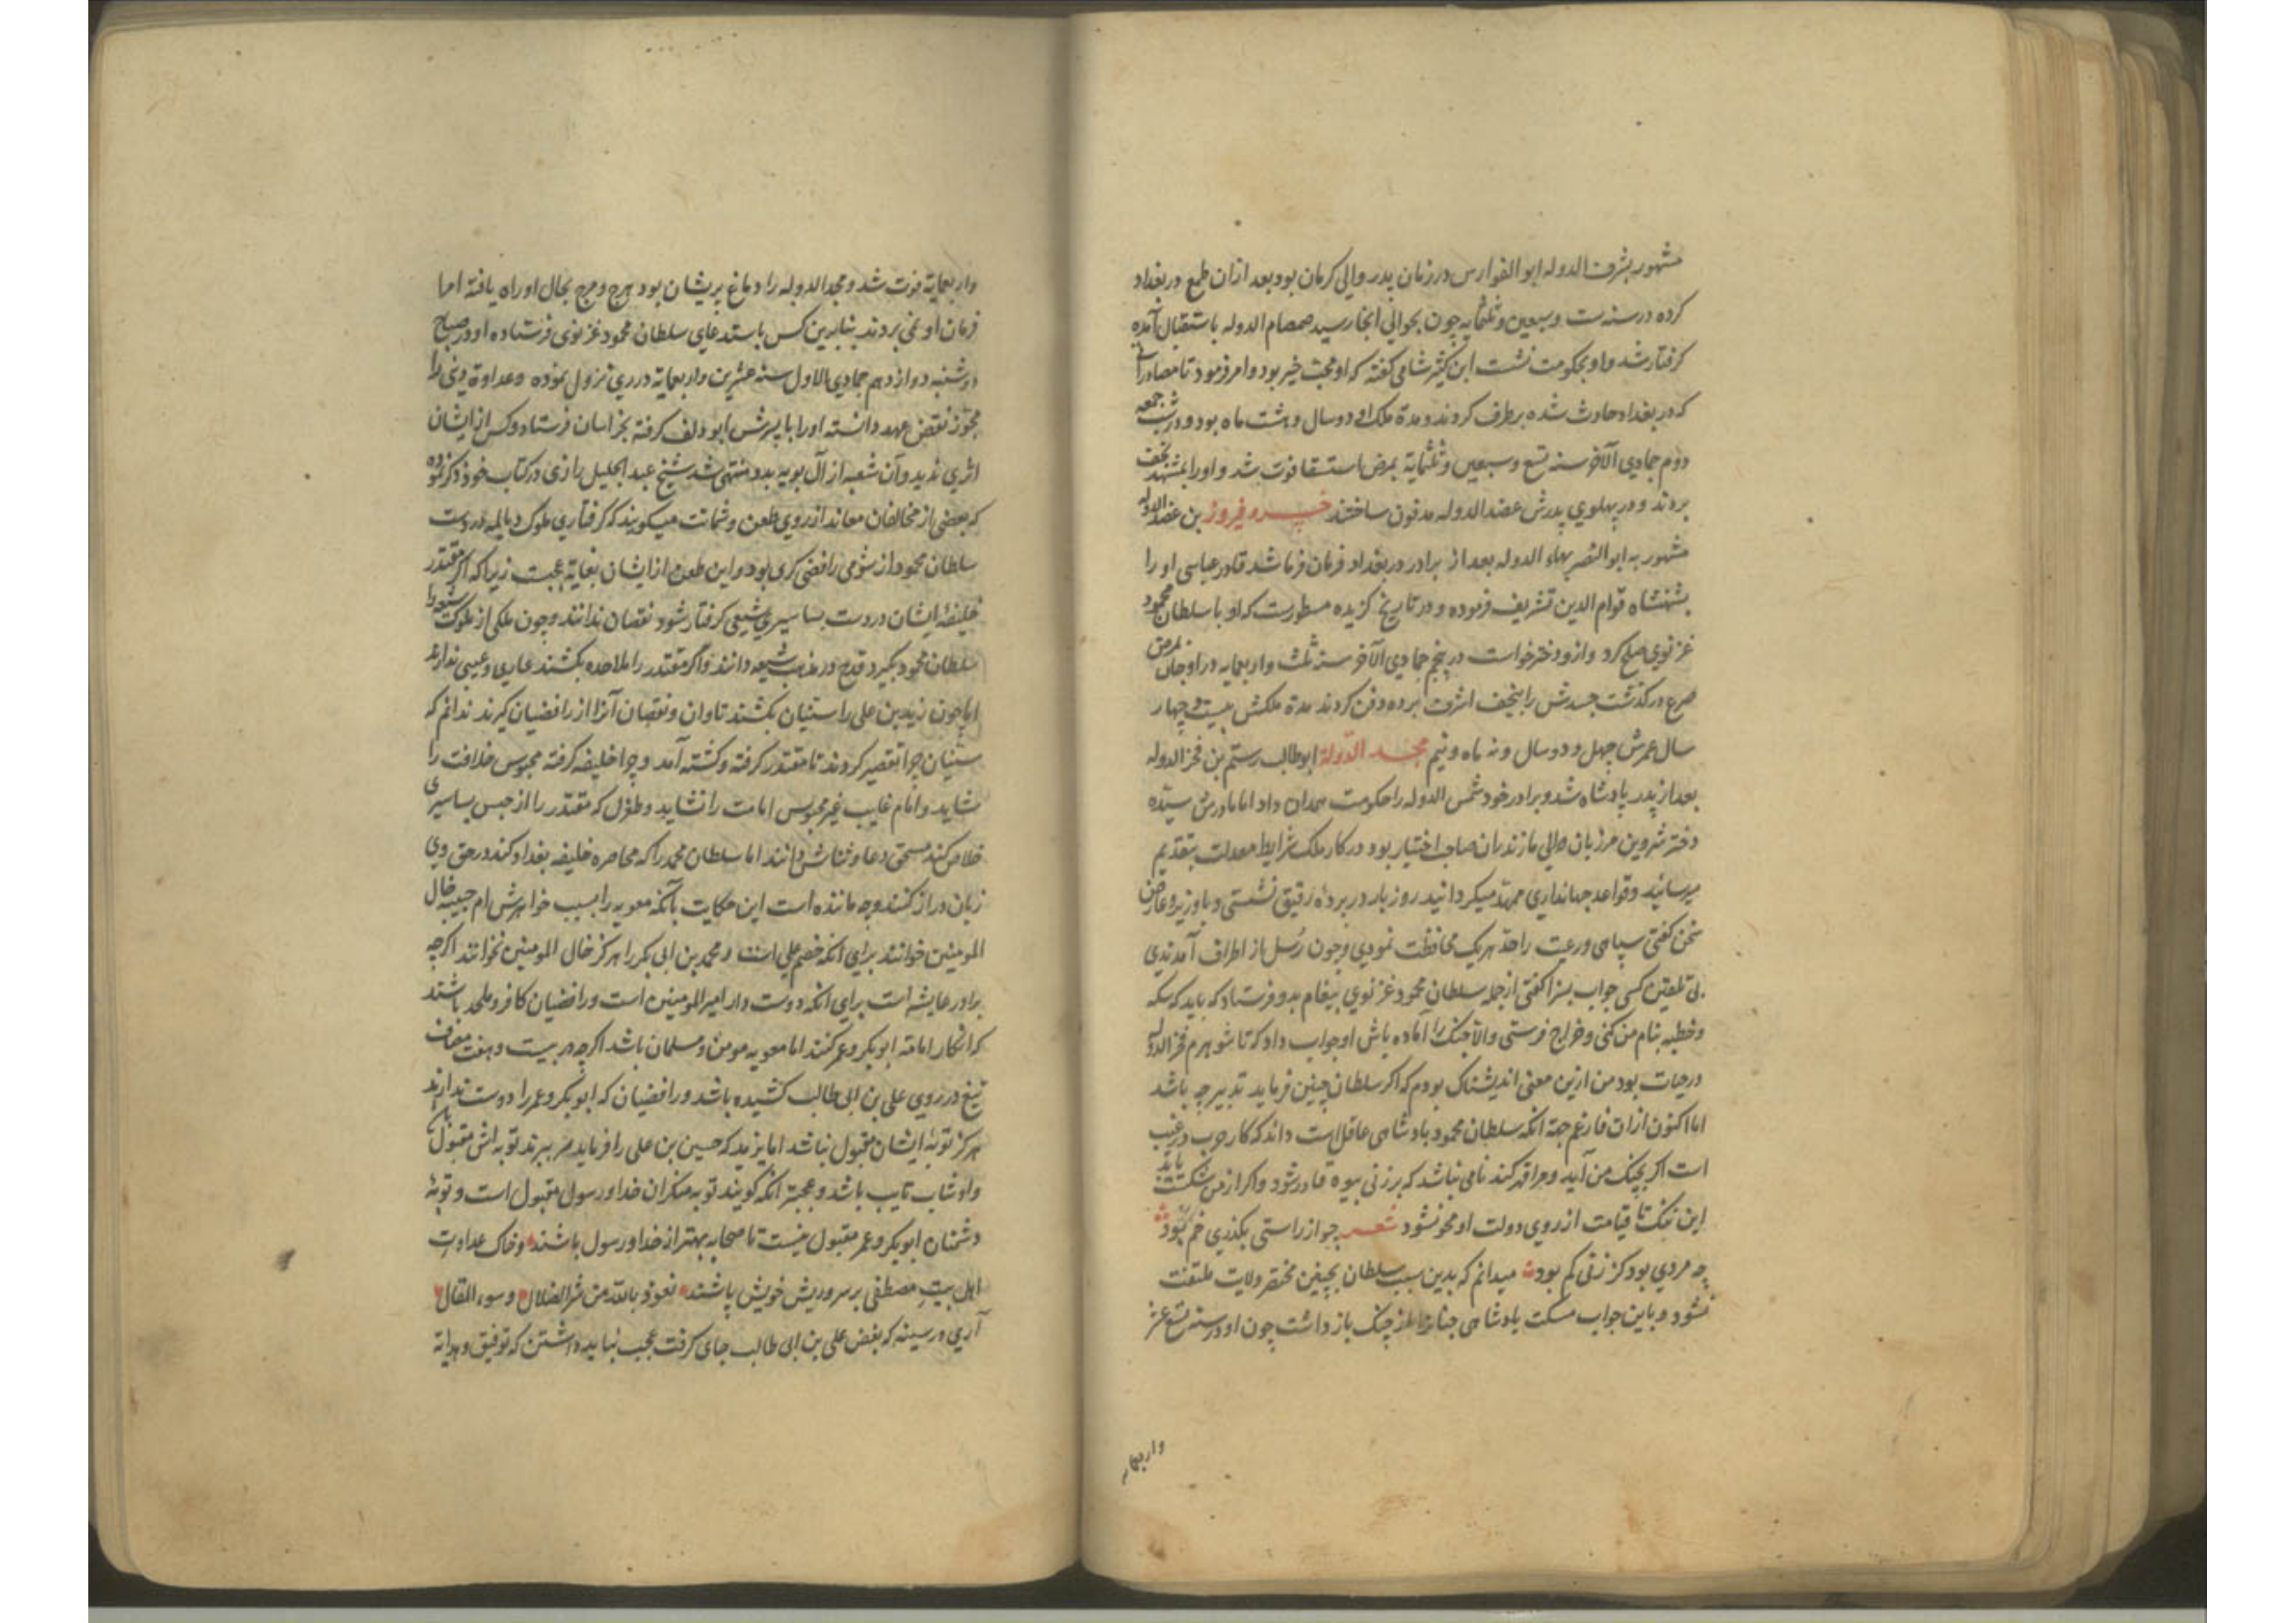 مشهور بشرف الدوله ابو الفوارس در زمان پدر والی کرمان بود بعد ازان طمع در بغداد
کرده در سنه ست و سبعین و ثلثمایه چون بحوالی انجا رسید صمصام الدوله باستقبال آمده
کرفتار شد و او بحکومت نشست ابن کثیر شامی کفته که او محب خیر بود و امر فرمود تا مصادرات
که در بغداد حادث شده برطرف کردند و مدة ملک او دو سال و هشت ماه بود و در شب جمعه
دوم جمادی الآخر سنه تسع و سبعین و ثلثمایة بمرض استسقا فوت شد و او را بمشهد نجف
بردند و در پهلوی پدرش عضد الدوله مدفون ساختند خسرو فیروز بن عضد الدوله
مشهور به ابو النصر بهاء الدوله بعد از برادر در بغداد فرمان فرما شد قادر عباسی او را
بشهنشاه قوام الدین تشریف فرموده و در تاریخ کزیده مسطورست که او با سلطان محمود
غزنوی صلح کرد و ازو دختر خواست در پنجم جمادی الآخر سنه ثلث و اربعمایه در اوجان بمرض
صرع درکذشت جسدش را بنجف اشرف برده دفن کردند مدة ملکش بیست و چهار
سال عمرش چهل و دو سال و نه ماه و نیم مجد الدولة ابوطالب رستم بن فخر الدوله
بعد از پدر پادشاه شد و برادر خود شمس الدوله را حکومت همدان داد اما مادرش سیّده
دختر شروین مرزبان والی مازندران صاحب اختیار بود در کار ملک شرایط معدلت بتقدیم
میرسانید و قواعد جهانداری ممهّد میکردانید روز بار در پرده رقیق نشستی و با وزیر و عارض
سخن کفتی سپاهی و رعیت را حدّ هر یک محافظت نمودی و چون رُسل از اطراف آمدندی
بی تلقین کسی جواب بسزا کفتی از جمله سلطان محمود غزنوی پیغام بدو فرستاد که باید که سکه
و خطبه بنام من کنی و خراج فرستی والّا جنک را آماده باش او جواب داد که تا شوهرم فخر الدوله
در حیات بود من ازین معنی اندیشناک بودم که اکر سلطان چنین فرماید تدبیر چه باشد
اما اکنون ازان فارغم جهة آنکه سلطان محمود پادشاهی عاقلست داند که کار حرب در غیب
است اکر بجنک من آید و مرا قهر کند نامی نباشد که بر زنی بیوه قادر شود و اکر از من شکست یابد
این ننک تا قیامت از روی دولت او محو نشود شعر چو از راستی بکذری خم بود
چه مردی بود کز زنی کم بود میدانم که بدین سبب سلطان بچنین مختصر ولایت ملتفت
نشود و باین جواب مسکت پادشاهی چنان را از جنک باز داشت چون او در سنه تسع عشر
واربعمایه
واربعمایة فوت شد و مجد الدوله را دماغ پریشان بود هرج و مرج بحال او راه یافته امرا
فرمان او نمی بردند بنابرین کس باستدعای سلطان محمود غزنوی فرستاده او در صباح
دوشنبه دوازدهم جمادی الاول سنه عشرین واربعمایة در ری نزول نموده و عداوة دینی را
مجوّز نقض عهد دانسته او را با پسرش ابو دلف کرفته بخراسان فرستاد و کس از ایشان
اثری ندید و آن شعبه از آل بویه بدو منتهی شد شیخ عبد الجلیل رازی در کتاب خود ذکر نموده
که بعضی از مخالفان معاند از روی طعن و شماتت میکویند که کرفتاری ملوک دیالمه در دست
سلطان محمود از شومی رافضی کری بود و این طعن از ایشان بغایة عجبست زیرا که اکر مقتدر
خلیفۀ ایشان در دست بساسیری شیعی کرفتار شود نقصان ندانند و چون ملکی از ملوک شیعه را
سلطان محمود بکیرد قدح در مذهب شیعه دانند و اکر مقتدر را ملاحده بکشند عاری و عیبی ندارند
اما چون زید بن علی را سنّیان بکشند تاوان و نقصان آنرا از رافضیان کیرند ندانم که
سنّیان چرا تقصیر کردند تا مقتدر کرفته و کشته آمد و چرا خلیفه کرفته محبوس خلافت را
شاید و امام غایب غیر محبوس امامت را نشاید و طغرل که مقتدر را از حبس بساسیری
خلاص کند مستحق دعا و ثناش دانند اما سلطان محمد را که محاصره خلیفه بغداد کند در حق وی
زبان دراز کنند و چه ماننده است این حکایت بآنکه معویه را بسبب خواهرش ام حبیبه خال
المومنین خوانند برای آنکه خصم علی است و محمد بن ابی بکر را هرکز خال المومنین نخوانند اکرچه
برادر عایشه است برای آنکه دوست دار امیر المومنین است و رافضیان کافر و ملحد باشند
که انکار امامة ابو بکر و عمر کنند اما معویه مومن و مسلمان باشد اکرچه در بیست و هفت مصاف
تیغ در روی علی بن ابی طالب کشیده باشد و رافضیان که ابو بکر و عمر را دوست ندارند
هرکز توبۀ ایشان مقبول نباشد اما یزید که حسین بن علی را فرماید سر ببرند توبه اش مقبول باشد
و او شاب تایب باشد و عجبتر آنکه کویند توبه منکران خدا و رسول مقبول است و توبۀ
دشمنان ابو بکر و عمر مقبول نیست تا صحابه بهتر از خدا و رسول باشند و خاک عداوت
اهل بیت مصطفی بر سر و ریش خویش پاشند نعوذ بالله من شرّ الضلال و سوء المقال
آری در سینه که بغض علی بن ابی طالب جای کرفت عجب نباید داشتن که توفیق و هدایة